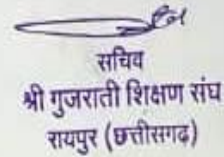 सचिव
श्री गुजराती शिक्षण संघ
रायपुर (छत्तीसगढ़)